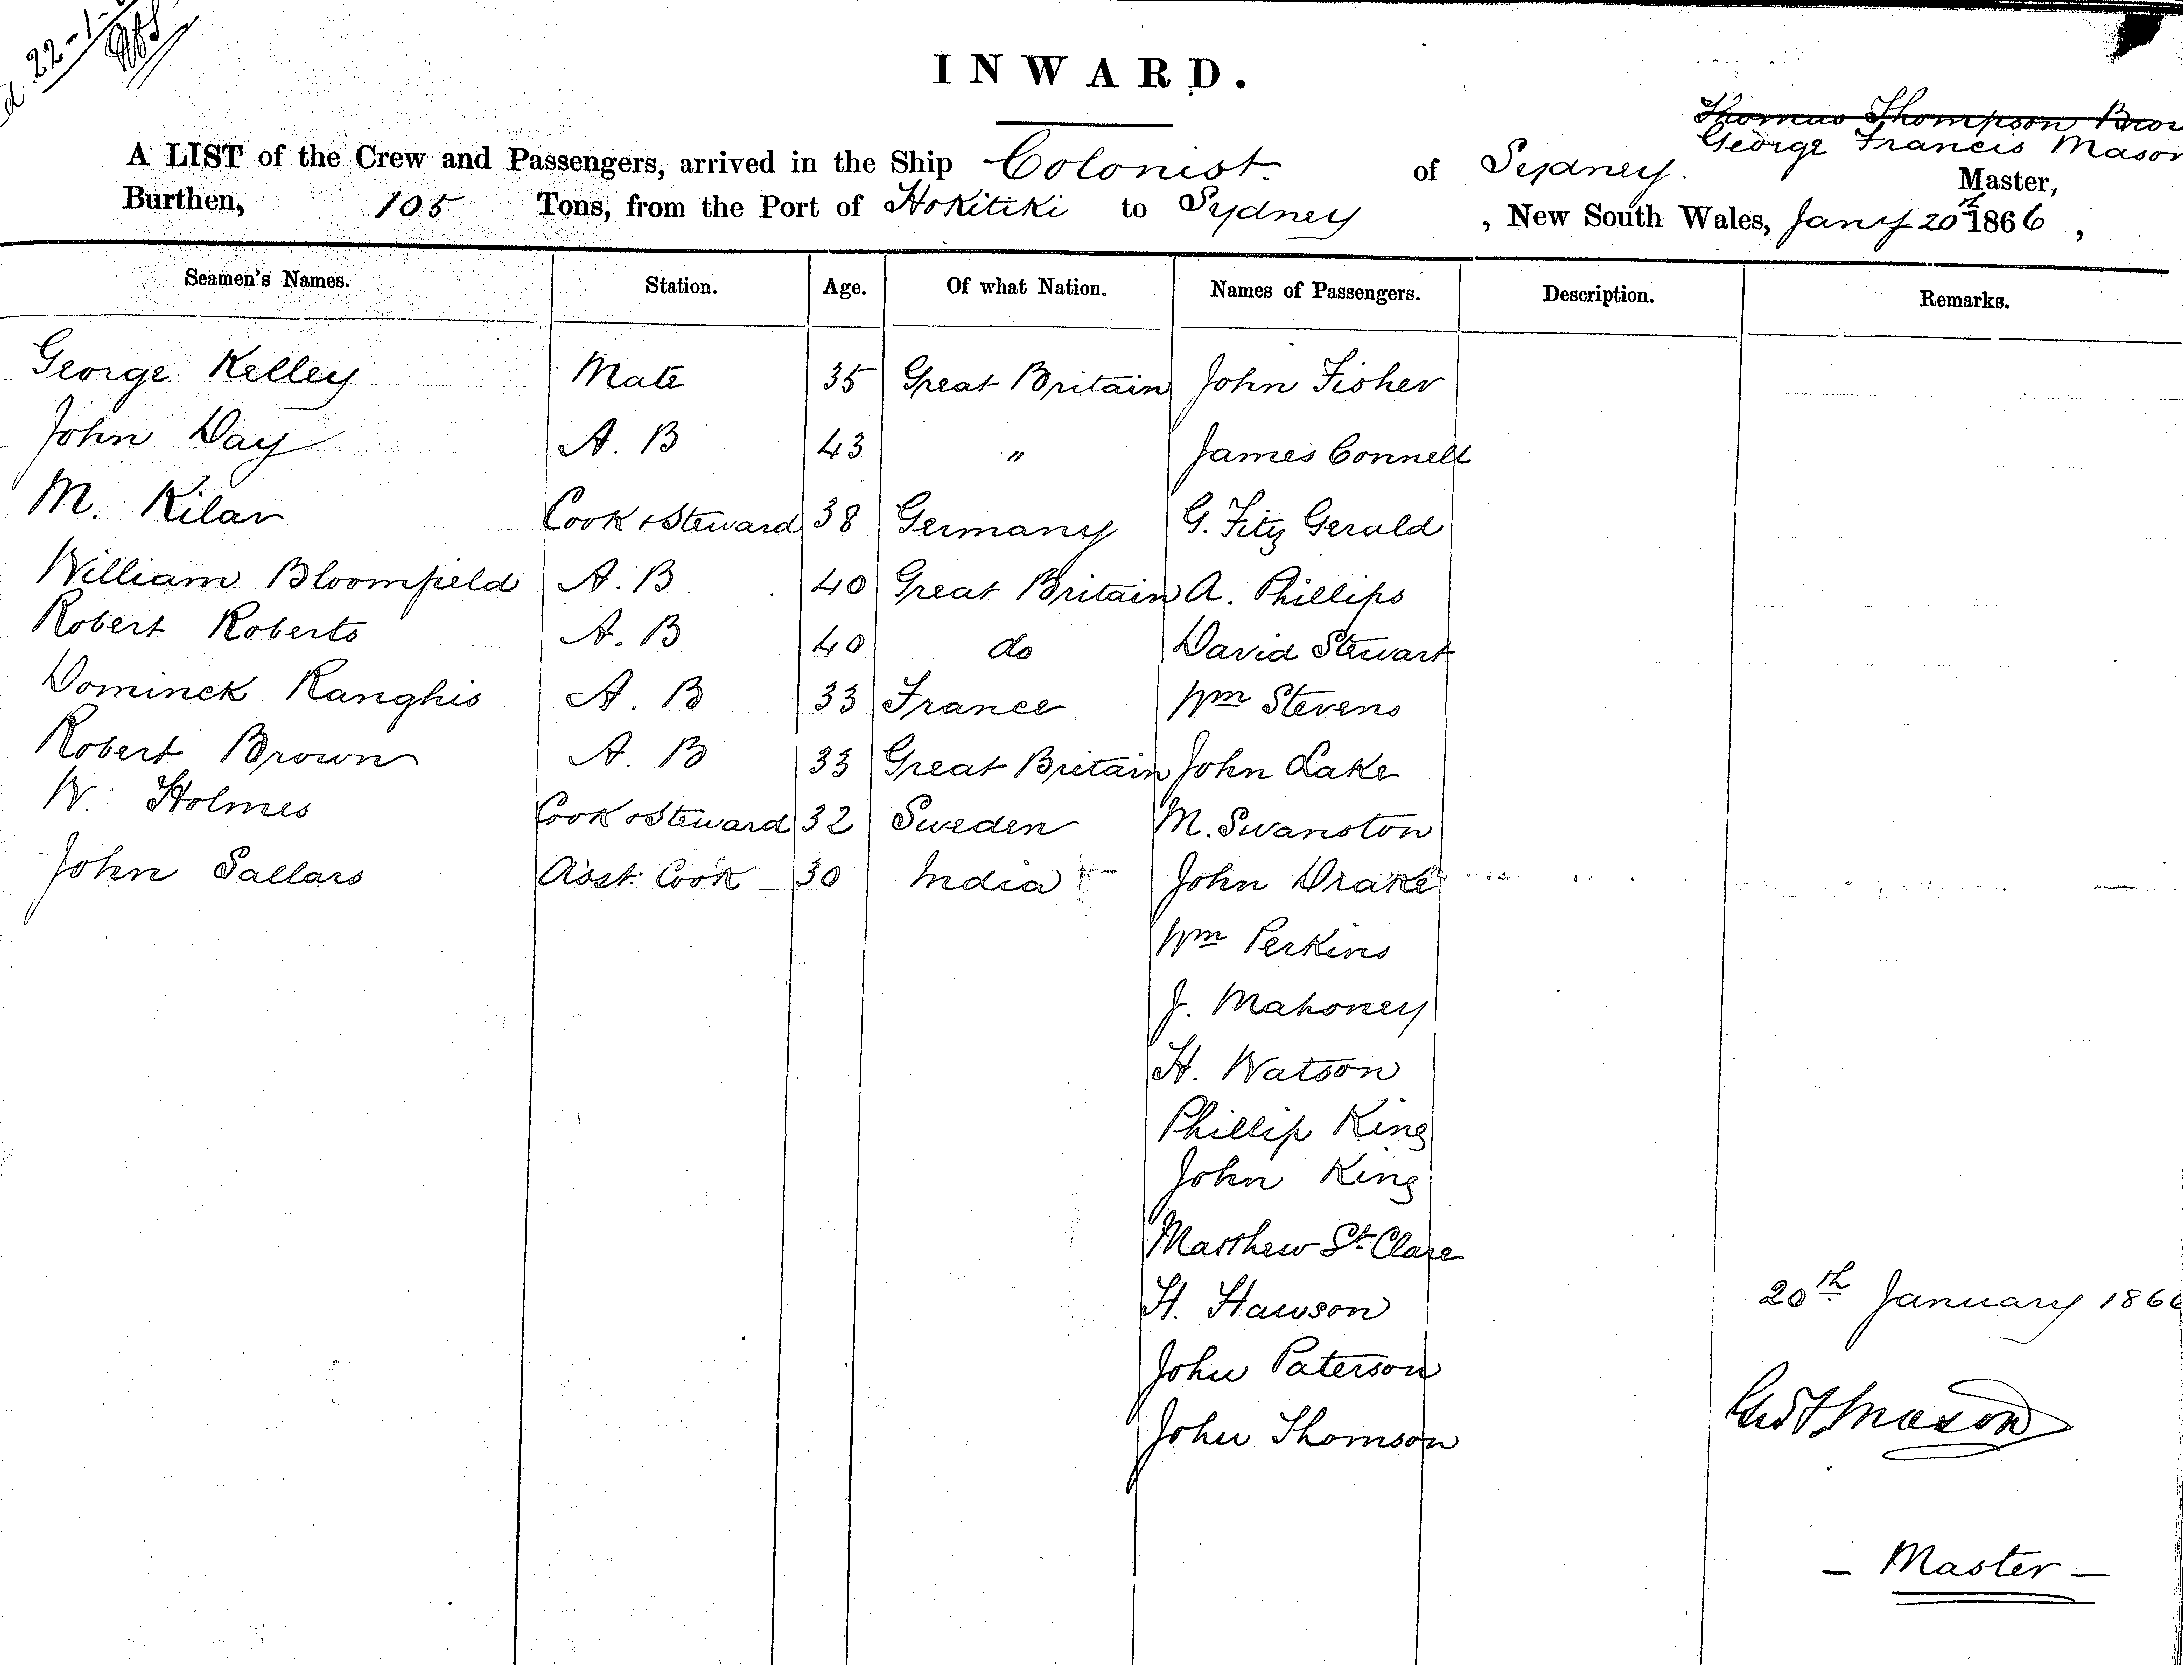 22-1-
INWARD.
Thomas Thompson
George Francis Mason
A LIST of the Crew and Passengers, arrived in the Ship Colonist of Sydney. Master,
Burthen, 105 Tons, from the Port of Hokitiki to Sydney, New South Wales, Jany 20th 1866,
Seamen's Names. Station. Age. Of what Nation. Names of Passengers. Description. Remarks.
George Kelley Mate 35 Great Britain John Fisher
John Day A. B 43 " James Connell
M. Kilar Cook & Steward 38 Germany G. Fitz Gerald
William Bloomfield A. B 40 Great Britain A. Phillips
Robert Roberts A. B 40 do David Stewart
Dominck Ranghis A. B 33 France Wm Stevens
Robert Brown A. B 33 Great Britain John Lake
W. Holmes Cook & Steward 32 Sweden M. Swanston
John Sallars Asst. Cook 30 India John Drake
Wm Perkins
J. Mahoney
H. Watson
Phillip King
John King
Matthew St Clare
H. Hawson
John Paterson
John Thomson
20th January 1866
Geo F Mason
- Master -